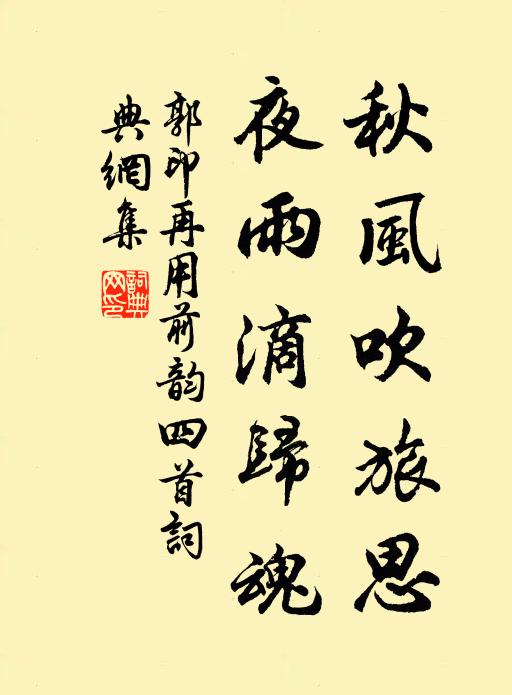 秋風吹旅思
夜雨滴歸魂
郭印再用前韵四首詞
典網集
詞典網印